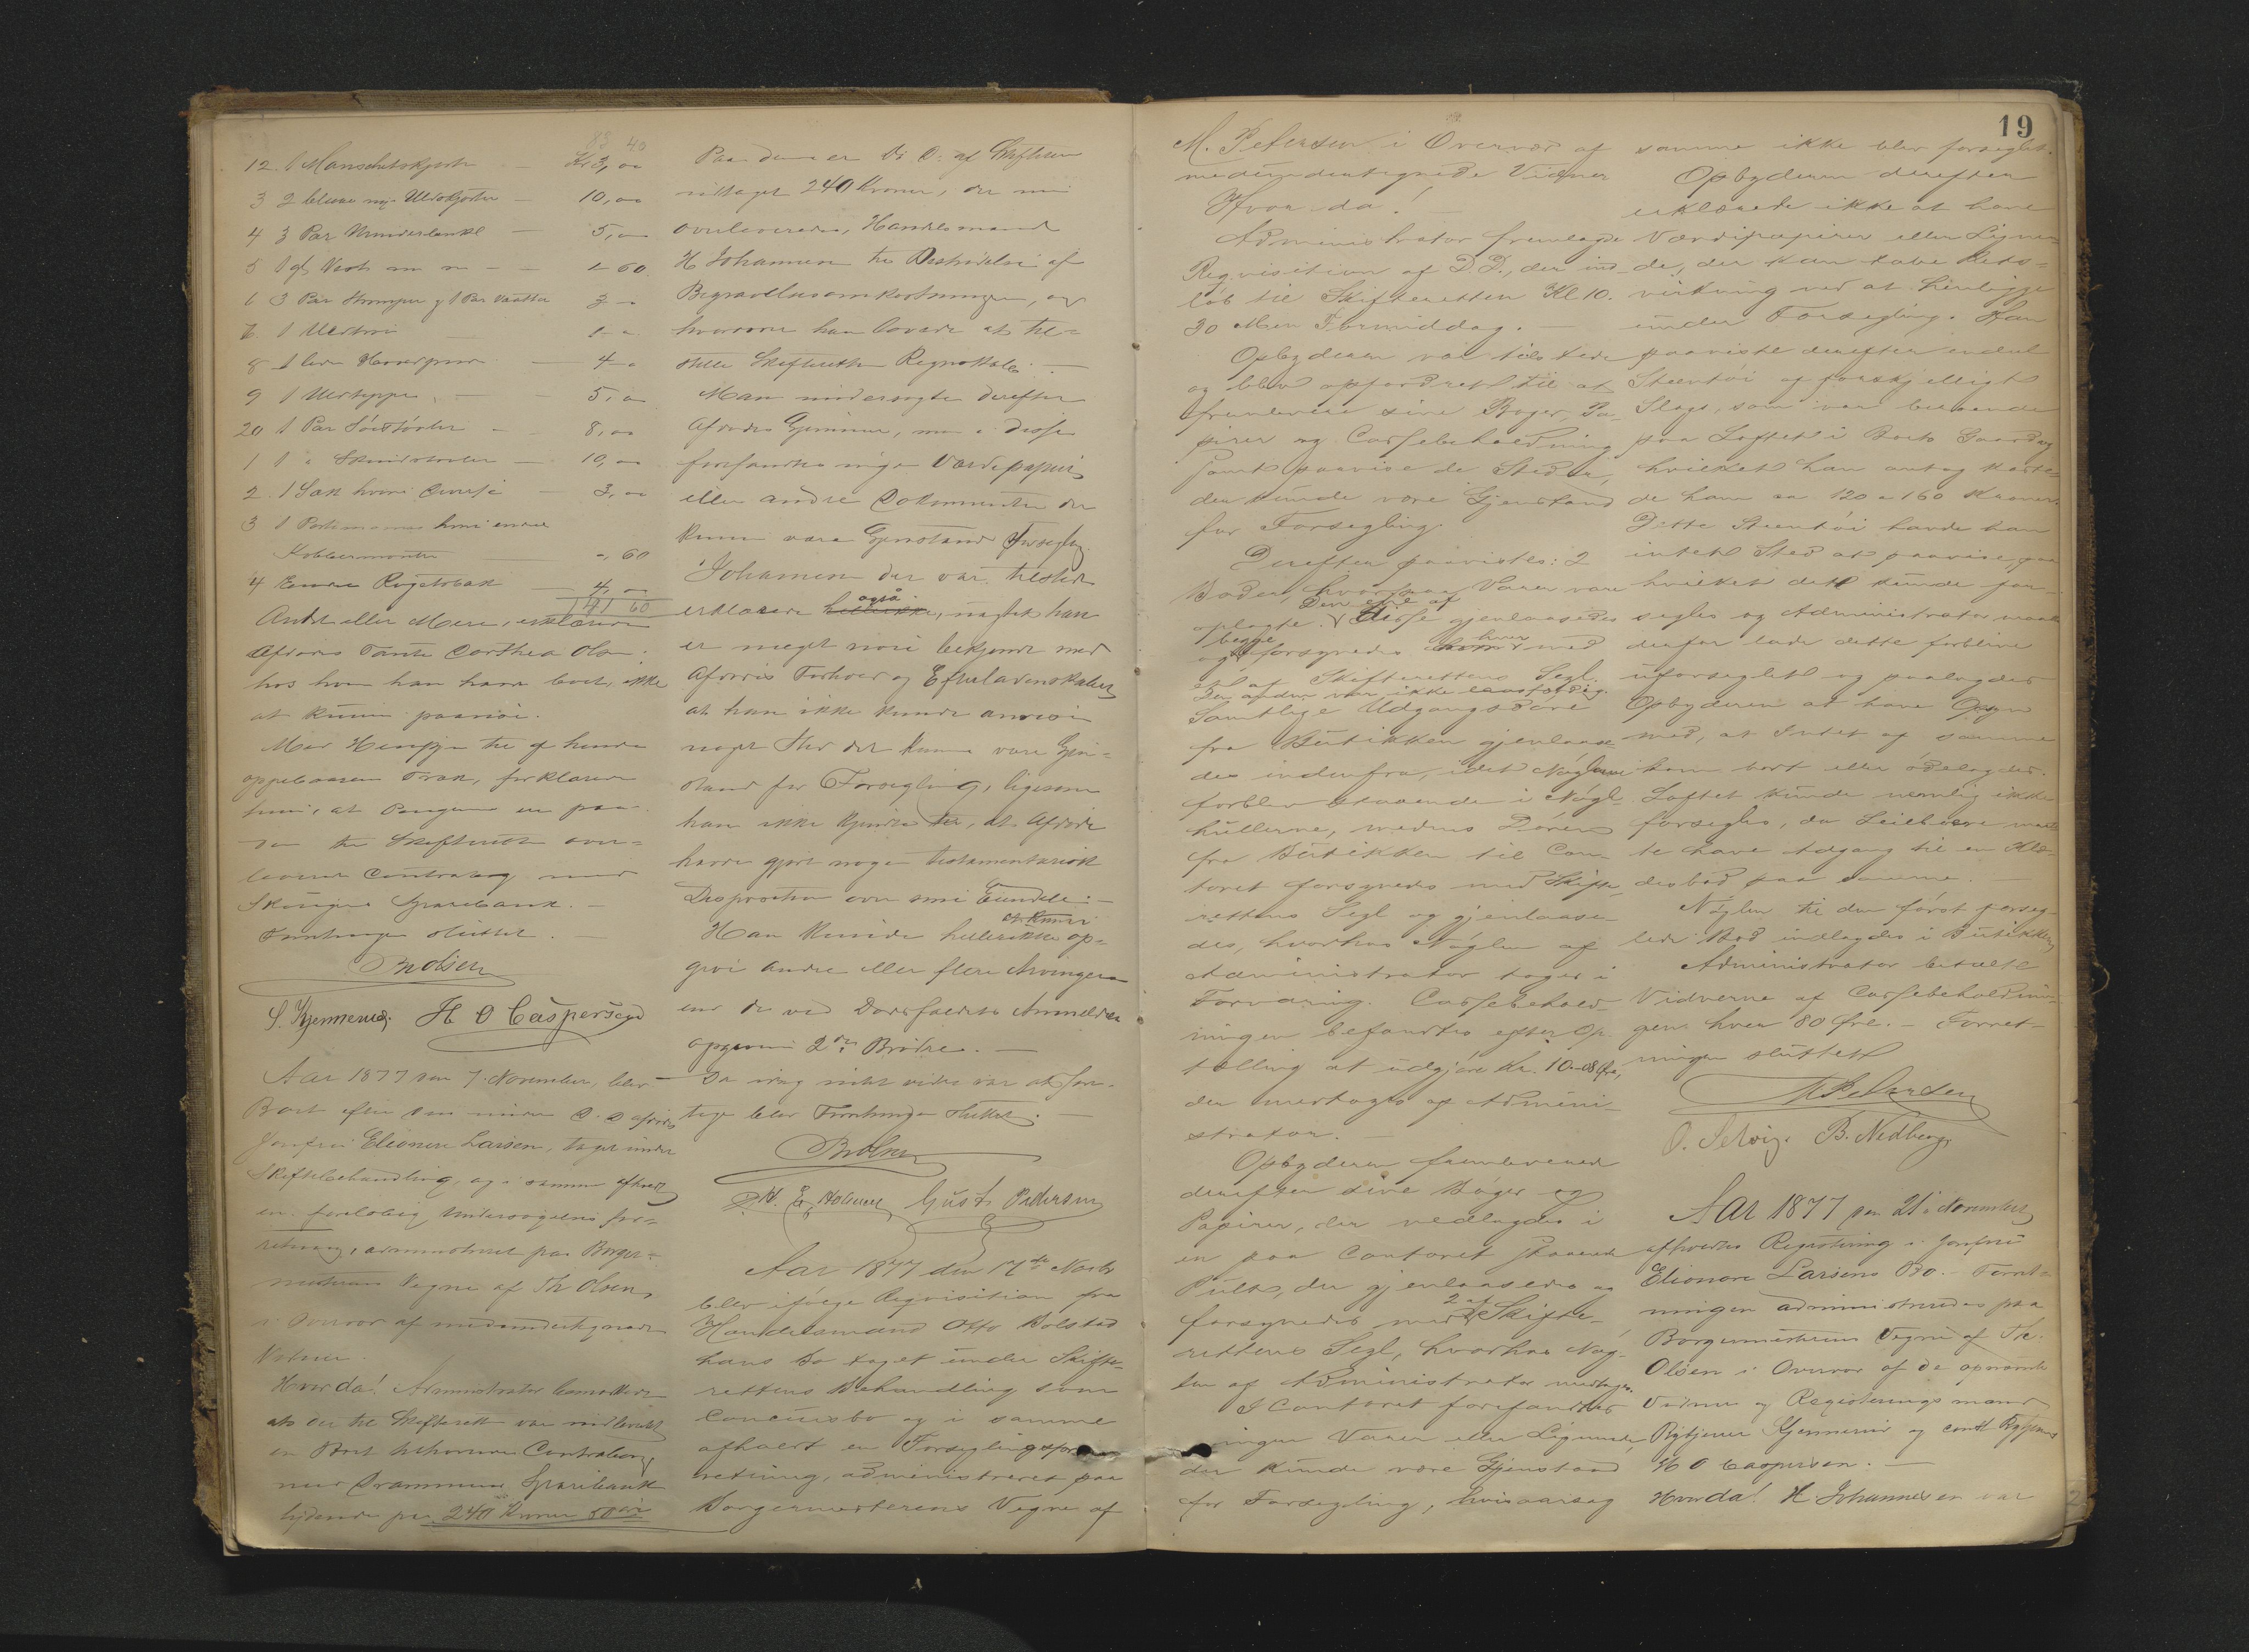 83 40
12. 1 Manschetskjorte — Kr 3,00
3 2 blaae nye Uldskjorter — 10,00
4 3 Par Underbenkl — 5,00
5 1 gl Vest — 1-60
6 3 Par Strømper og 1 Par Vanter 3-
7. 1
8 1 liden Hovedpude — 4-0
9 1 Uldteppe — 5,00
20 1 Par Søstøvler — 8,00
1 1 " Skindstøvler — 10,00
2. 1 Sæk hvori — 3,00
3 1 Portemonnæ hvori endel
Kobbermønter — 0,60
4 Endel Røgetobak 4,00
141 60
Andet eller Mere, erklærede
Afdødes Tante Carthea Olsen
hos hvem han havde boet, ikke
at kunne paavise.
Med Hensyn til af hende
oppebaaren
hun, at Pengene er
til Skifteretten over-
leverede Contrabog med
Skougers Sparebank. —
Forretningen sluttet. —
Th Olsen
S. Kjennerud. H O Caspersen
Aar 1877 den 7. November, blev
Boet efter den under D. D afdøde
Jomfru Elionore Larsen, taget under
Skiftebehandling, og i samme afholdt
en foreløbig Undersøgelses for-
retning, administreret paa Borger-
mesterens Vegne af Th Olsen,
i Overvær af medundertegnede
Vidner.
Hvor da! Administrator bemærkede
at der til Skifteretten var indleveret
en Boet tilhørende Contrabog
med Drammens Sparebank
lydende paa 240 Kroner 50 Øre
Paa denne er D: D: af Skifteretten
udtaget 240 Kroner, der
overleveredes Handelsmand
H Johannesen til Bestridelse af
Begravelsesomkostninger, og
hvorover han lovede at til-
stille Skifteretten Regnskab. —
Man undersøgte derefter
Afdødes Gjemmer, men i disse
forefandtes ingen Værdipapirer
eller andre Dokumenter der
kunne være Gjenstand Forsegling
Johannesen der var tilstede
erklærede også, uagtet han
er meget nøie bekjendt med
Afdødes Forhold og Efterladenskaber
at han ikke kunde anvise
noget Sted der kunne være Gjen-
stand for Forsegling, ligesom
han ikke kjendte til, at Afdøde
havde gjort nogen testamentarisk
Disposition over sine Eiendele. —
Han kunde hellerikke op-
give andre eller flere Arvinger
end de ved Dødsfaldets Anmeldelse
opgivne 2de Brødre. —
Da intet videre var at fore-
tage blev Forretningen sluttet. —
Th Olsen
Gust. Pedersen
Aar 1877 den 17de Novbr
blev ifølge Reqvisition fra
Handelsmand Otto Bolstad
hans Bo taget under Skifte-
rettens Behandling som
Concursbo og i samme
afholdt en Forseglingsfor-
retning, administreret paa
Borgermesterens Vegne af
19
M. Pettersen i Overvær af
medundertegnede Vidner
Hvor da! —
Administrator fremlagde
Reqvisition af D. D., der ind-
løb til Skifteretten Kl 10.
30 Min Formiddag. —
Opbyderen var tilstede
og blev opfordret til at
fremlevere sine Bøger, Pa-
pirer og Cassebeholdning
samt paavise de Steder,
der kunde være Gjenstand
for Forsegling.
Derefter paavistes: 2
Boder, hvorpaa Varer vare
oplagte. Den ene af disse gjenlaasedes
og begge forsynedes hver med
et af Skifterettens Segl.
Den anden var ikke laasfærdig.
Samtlige Udgangsdøre
fra Butikken gjenlaase-
des indenfra, idet Nøglerne
forblev staaende i Nøgle-
hullerne, medens Døren
fra Butikken til Con-
toret forsynedes med Skifte-
rettens Segl og gjenlaase-
des, hvorhos Nøglen af
Administrator toges i
Forvaring. Cassebehold-
ningen befandtes efter Op-
tælling at udgjøre Kr. 10-08 Øre,
der modtoges af Admini-
strator. —
Opbyderen fremleverede
derefter sine Bøger og
Papirer, der nedlagdes i
en paa Contoret staaende
Pult, der gjenlaasedes og
forsynedes med 2 af Skifte-
rettens Segl, hvorhos Nøg-
len af Administrator modtoges.
I Contoret forefandtes
ingen Varer eller Lignende,
der kunde være Gjenstand
for Forsegling, hvisaarsag
samme ikke blev forseglet.
Opbyderen derefter
erklærede ikke at have
Værdipapirer eller Lignen-
de, der kan tabe Rets-
virkning ved at henligge
under Forsegling. Han
paaviste derefter endel
Steentøi af forskjelligt
Slags, som var beroende
paa Loftet i Boets Gaard og
hvilket han antog koste-
de ham ca. 120 a 160 Kroner.
Dette Steentøi havde han
intet Sted at paavise, paa
hvilket det kunde for-
segles og Administrator maatte
derfor lade dette forblive
uforseglet og paalagdes
Opbyderen at have Opsyn
med, at Intet af samme
kom bort eller ødelagdes.
Loftet kunde nemlig ikke
forsegles, da Leieboere maat-
te have Adgang til en Klæ-
desbod paa samme. —
Nøglen til den først forseg-
lede Bod indlagdes i Butikken
Administrator betalte
Vidnerne af Cassebeholdnin-
gen hver 80 Øre. — Forret-
ningen sluttet
M Pettersen
O. Selvig. B. Nedberg,
Aar 1877 den 21 November
afholdtes Registrering i Jomfru
Elionore Larsens Bo. — Forret-
ningen administreredes paa
Borgermesterens Vegne af Th.
Olsen i Overvær af de opnævnte
Vidner og Registreringsmænd
Kjennerud og const
H O Caspersen. —
Hvorda! H. Johannesen var